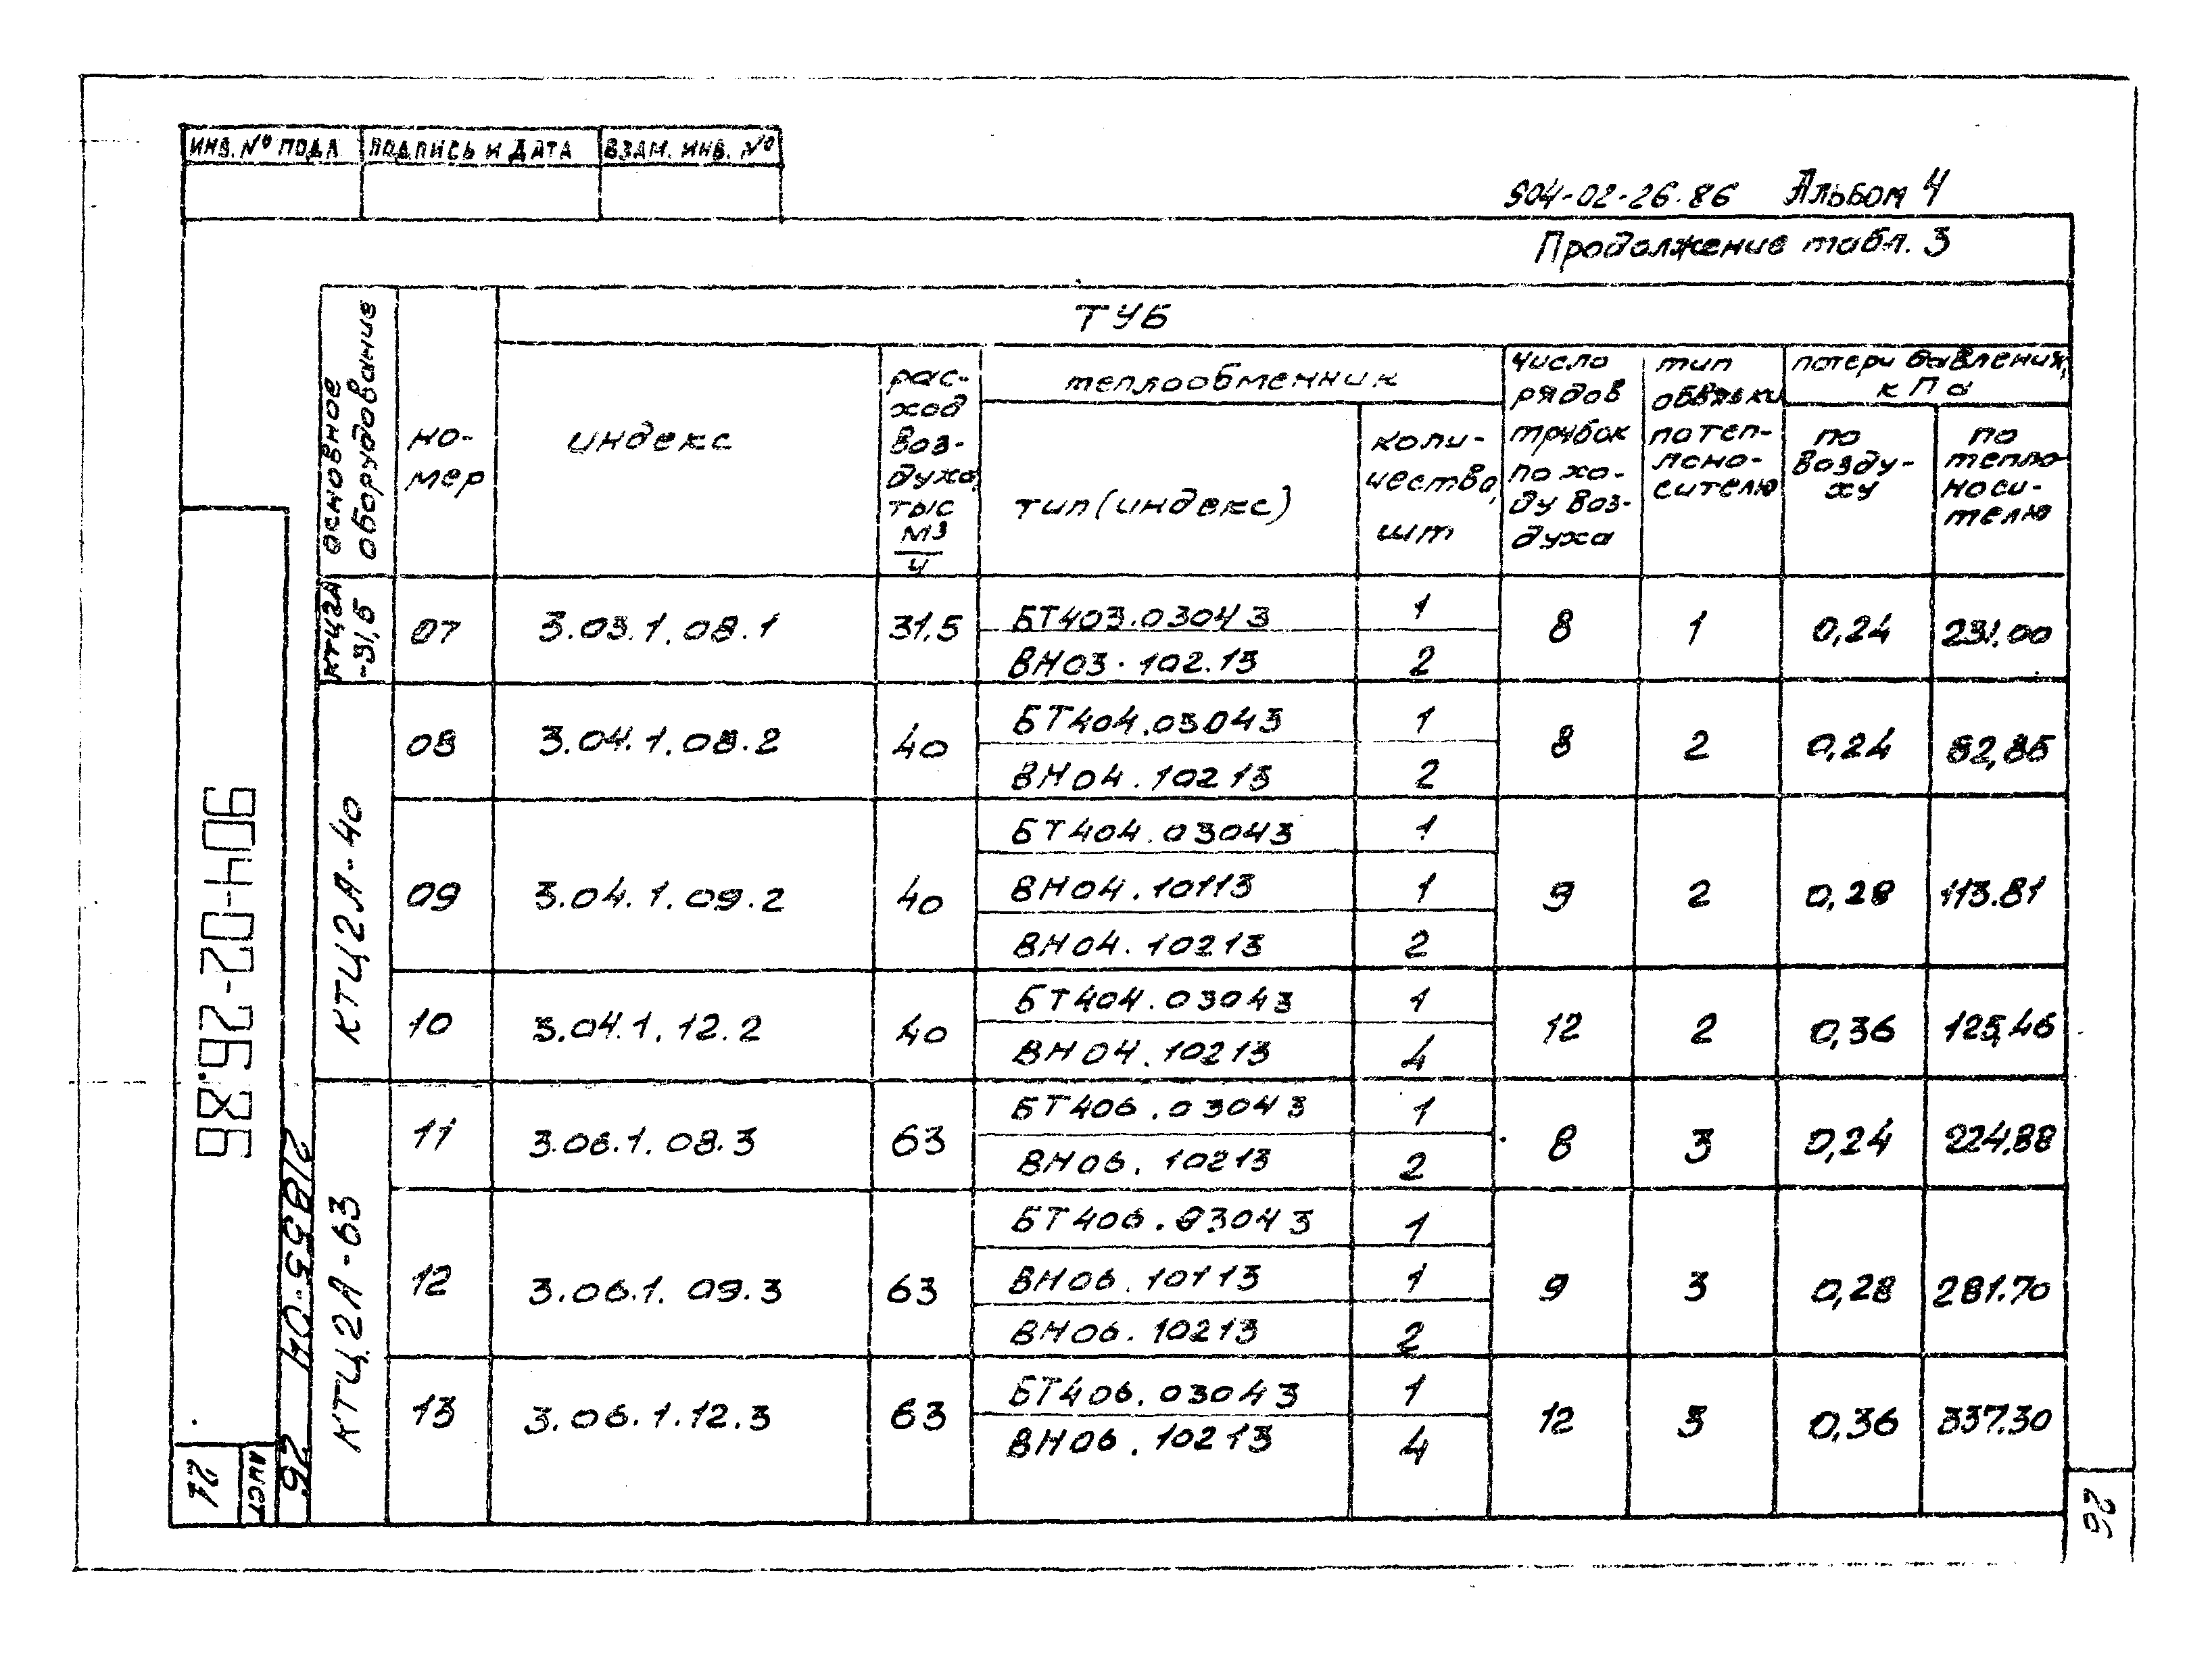 ИНВ. № ПОДЛ ПОДПИСЬ И ДАТА ВЗАМ. ИНВ. №
904-02-26.86 Альбом 4
Продолжение табл. 3
основное оборудование
но-
мер
ТУБ
индекс
рас-
ход
воз-
духа,
тыс
м3
ч
теплообменник
тип (индекс)
коли-
чество,
шт
число
рядов
трубок
по хо-
ду воз-
духа
тип
обвязки
по теп-
лоно-
сителю
потери давления,
кПа
по
возду-
ху
по
тепло
носи-
телю
КТЦ2А -31,5
07 3.03.1.08.1 31.5 БТ403.03043 1 8 1 0,24 231.00
ВН03.102.13 2
КТЦ2А-40
08 3.04.1.08.2 40 БТ404.03043 1 8 2 0,24 82,85
ВН04.10213 2
09 3.04.1.09.2 40 БТ404.03043 1 9 2 0,28 113.81
ВН04.10113 1
ВН04.10213 2
10 3.04.1.12.2 40 БТ404.03043 1 12 2 0,36 125,46
ВН04.10213 4
КТЦ2А-63
11 3.06.1.08.3 63 БТ406.03043 1 8 3 0,24 224.88
ВН06.10213 2
12 3.06.1.09.3 63 БТ406.03043 1 9 3 0,28 281.70
ВН06.10113 1
ВН06.10213 2
13 3.06.1.12.3 63 БТ406.03043 1 12 3 0,36 337.30
ВН06.10213 4
904-02-26.86
21855-04 26
лист
26